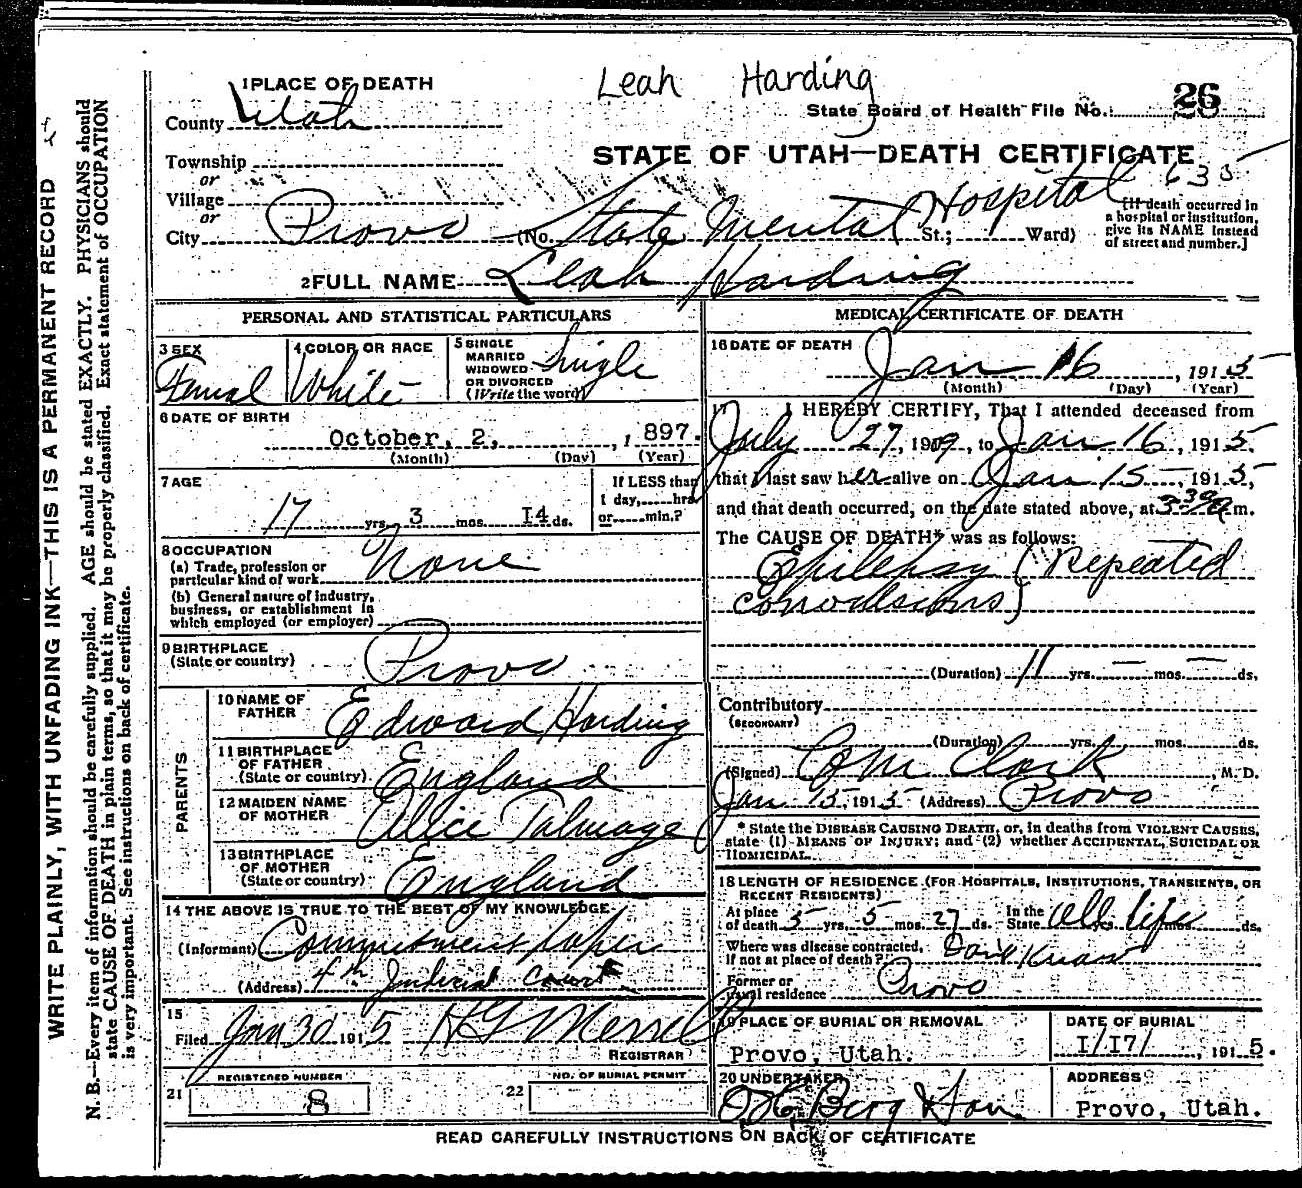 Leah Harding
1 PLACE OF DEATH
State Board of Health File No. 26
County Utah
STATE OF UTAH—DEATH CERTIFICATE
635
Township
or
Village
or
City Provo (No. State Mental Hospital St.; Ward)
[If death occurred in
a hospital or institution,
give its NAME instead
of street and number.]
2 FULL NAME Leah Harding
PERSONAL AND STATISTICAL PARTICULARS
3 SEX
Femal
4 COLOR OR RACE
White
5 SINGLE
MARRIED
WIDOWED
OR DIVORCED
(Write the word)
Single
6 DATE OF BIRTH
October, 2, , 1897.
(Month) (Day) (Year)
7 AGE
17 yrs. 3 mos. 14 ds.
If LESS than
1 day, hrs.
or min.?
8 OCCUPATION
(a) Trade, profession or
particular kind of work None
(b) General nature of industry,
business, or establishment in
which employed (or employer)
9 BIRTHPLACE
(State or country) Provo
PARENTS
10 NAME OF
FATHER Edward Harding
11 BIRTHPLACE
OF FATHER
(State or country) England
12 MAIDEN NAME
OF MOTHER Alice Talmage
13 BIRTHPLACE
OF MOTHER
(State or country) England
14 THE ABOVE IS TRUE TO THE BEST OF MY KNOWLEDGE
(Informant) Commitment paper
(Address) 4th Judicial Court
15
Filed Jan 30 1915 H G Merrell
REGISTRAR
21 REGISTERED NUMBER
8
22 NO. OF BURIAL PERMIT
MEDICAL CERTIFICATE OF DEATH
16 DATE OF DEATH
Jan 16, 1915
(Month) (Day) (Year)
17 I HEREBY CERTIFY, That I attended deceased from
July 27, 1909, to Jan 16, 1915,
that I last saw her alive on Jan 15, 1915,
and that death occurred, on the date stated above, at 3:30 a m.
The CAUSE OF DEATH* was as follows:
Epilepsy (Repeated
convulsions)
(Duration) 11 yrs. — mos. — ds.
Contributory
(SECONDARY)
(Duration) yrs. mos. ds.
(Signed) Clark, M. D.
Jan 15, 1915 (Address) Provo
* State the DISEASE CAUSING DEATH, or, in deaths from VIOLENT CAUSES,
state (1) MEANS OF INJURY; and (2) whether ACCIDENTAL, SUICIDAL OR
HOMICIDAL.
18 LENGTH OF RESIDENCE (FOR HOSPITALS, INSTITUTIONS, TRANSIENTS, OR
RECENT RESIDENTS)
At place
of death 5 yrs. 5 mos. 27 ds. In the
State All life yrs. mos. ds.
Where was disease contracted,
if not at place of death? Don't know
Former or
usual residence Provo
19 PLACE OF BURIAL OR REMOVAL
Provo, Utah.
DATE OF BURIAL
1/17/ , 1915.
20 UNDERTAKER
Berg & Son
ADDRESS
Provo, Utah.
READ CAREFULLY INSTRUCTIONS ON BACK OF CERTIFICATE
WRITE PLAINLY, WITH UNFADING INK—THIS IS A PERMANENT RECORD
N. B.—Every item of information should be carefully supplied. AGE should be stated EXACTLY. PHYSICIANS should
state CAUSE OF DEATH in plain terms, so that it may be properly classified. Exact statement of OCCUPATION
is very important. See instructions on back of certificate.